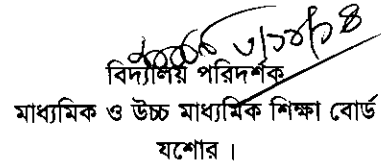 বিদ্যালয় পরিদর্শক
মাধ্যমিক ও উচ্চ মাধ্যমিক শিক্ষা বোর্ড
যশোর ।